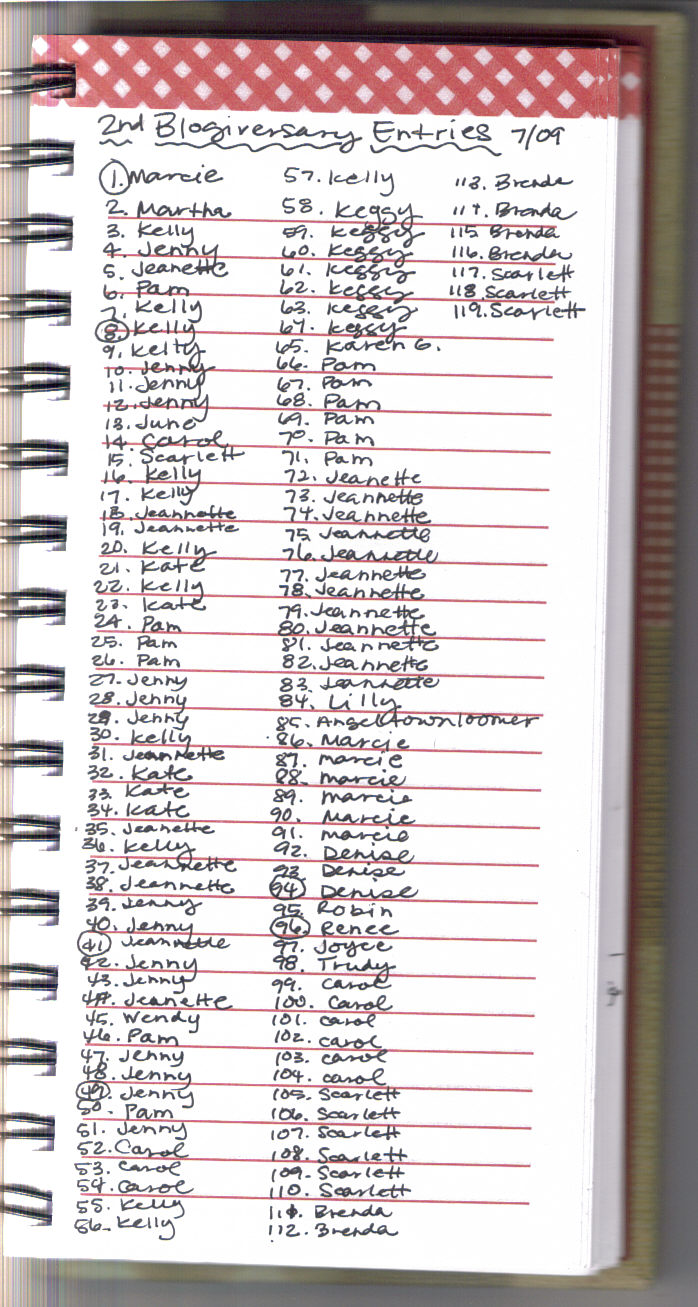 2nd Blogiversary Entries 7/09
1. Marcie
2. Martha
3. Kelly
4. Jenny
5. Jeanette
6. Pam
7. Kelly
8. Kelly
9. Kelly
10. Jenny
11. Jenny
12. Jenny
13. June
14. Carol
15. Scarlett
16. Kelly
17. Kelly
18. Jeannette
19. Jeannette
20. Kelly
21. Kate
22. Kelly
23. Kate
24. Pam
25. Pam
26. Pam
27. Jenny
28. Jenny
29. Jenny
30. Kelly
31. Jeannette
32. Kate
33. Kate
34. Kate
35. Jeanette
36. Kelly
37. Jeannette
38. Jeannette
39. Jenny
40. Jenny
41. Jeannette
42. Jenny
43. Jenny
44. Jeanette
45. Wendy
46. Pam
47. Jenny
48. Jenny
49. Jenny
50. Pam
51. Jenny
52. Carol
53. Carol
54. Carol
55. Kelly
56. Kelly
57. Kelly
58. Keggy
59. Keggy
60. Keggy
61. Keggy
62. Keggy
63. Keggy
64. Keggy
65. Karen G.
66. Pam
67. Pam
68. Pam
69. Pam
70. Pam
71. Pam
72. Jeanette
73. Jeannette
74. Jeannette
75. Jeannette
76. Jeannette
77. Jeannette
78. Jeannette
79. Jeannette
80. Jeannette
81. Jeannette
82. Jeannette
83. Jeannette
84. Lilly
85. Angeltownloomer
86. Marcie
87. Marcie
88. Marcie
89. Marcie
90. Marcie
91. Marcie
92. Denise
93. Denise
94. Denise
95. Robin
96. Renee
97. Joyce
98. Trudy
99. Carol
100. Carol
101. Carol
102. Carol
103. Carol
104. Carol
105. Scarlett
106. Scarlett
107. Scarlett
108. Scarlett
109. Scarlett
110. Scarlett
111. Brenda
112. Brenda
113. Brenda
114. Brenda
115 Brenda
116. Brenda
117. Scarlett
118. Scarlett
119. Scarlett